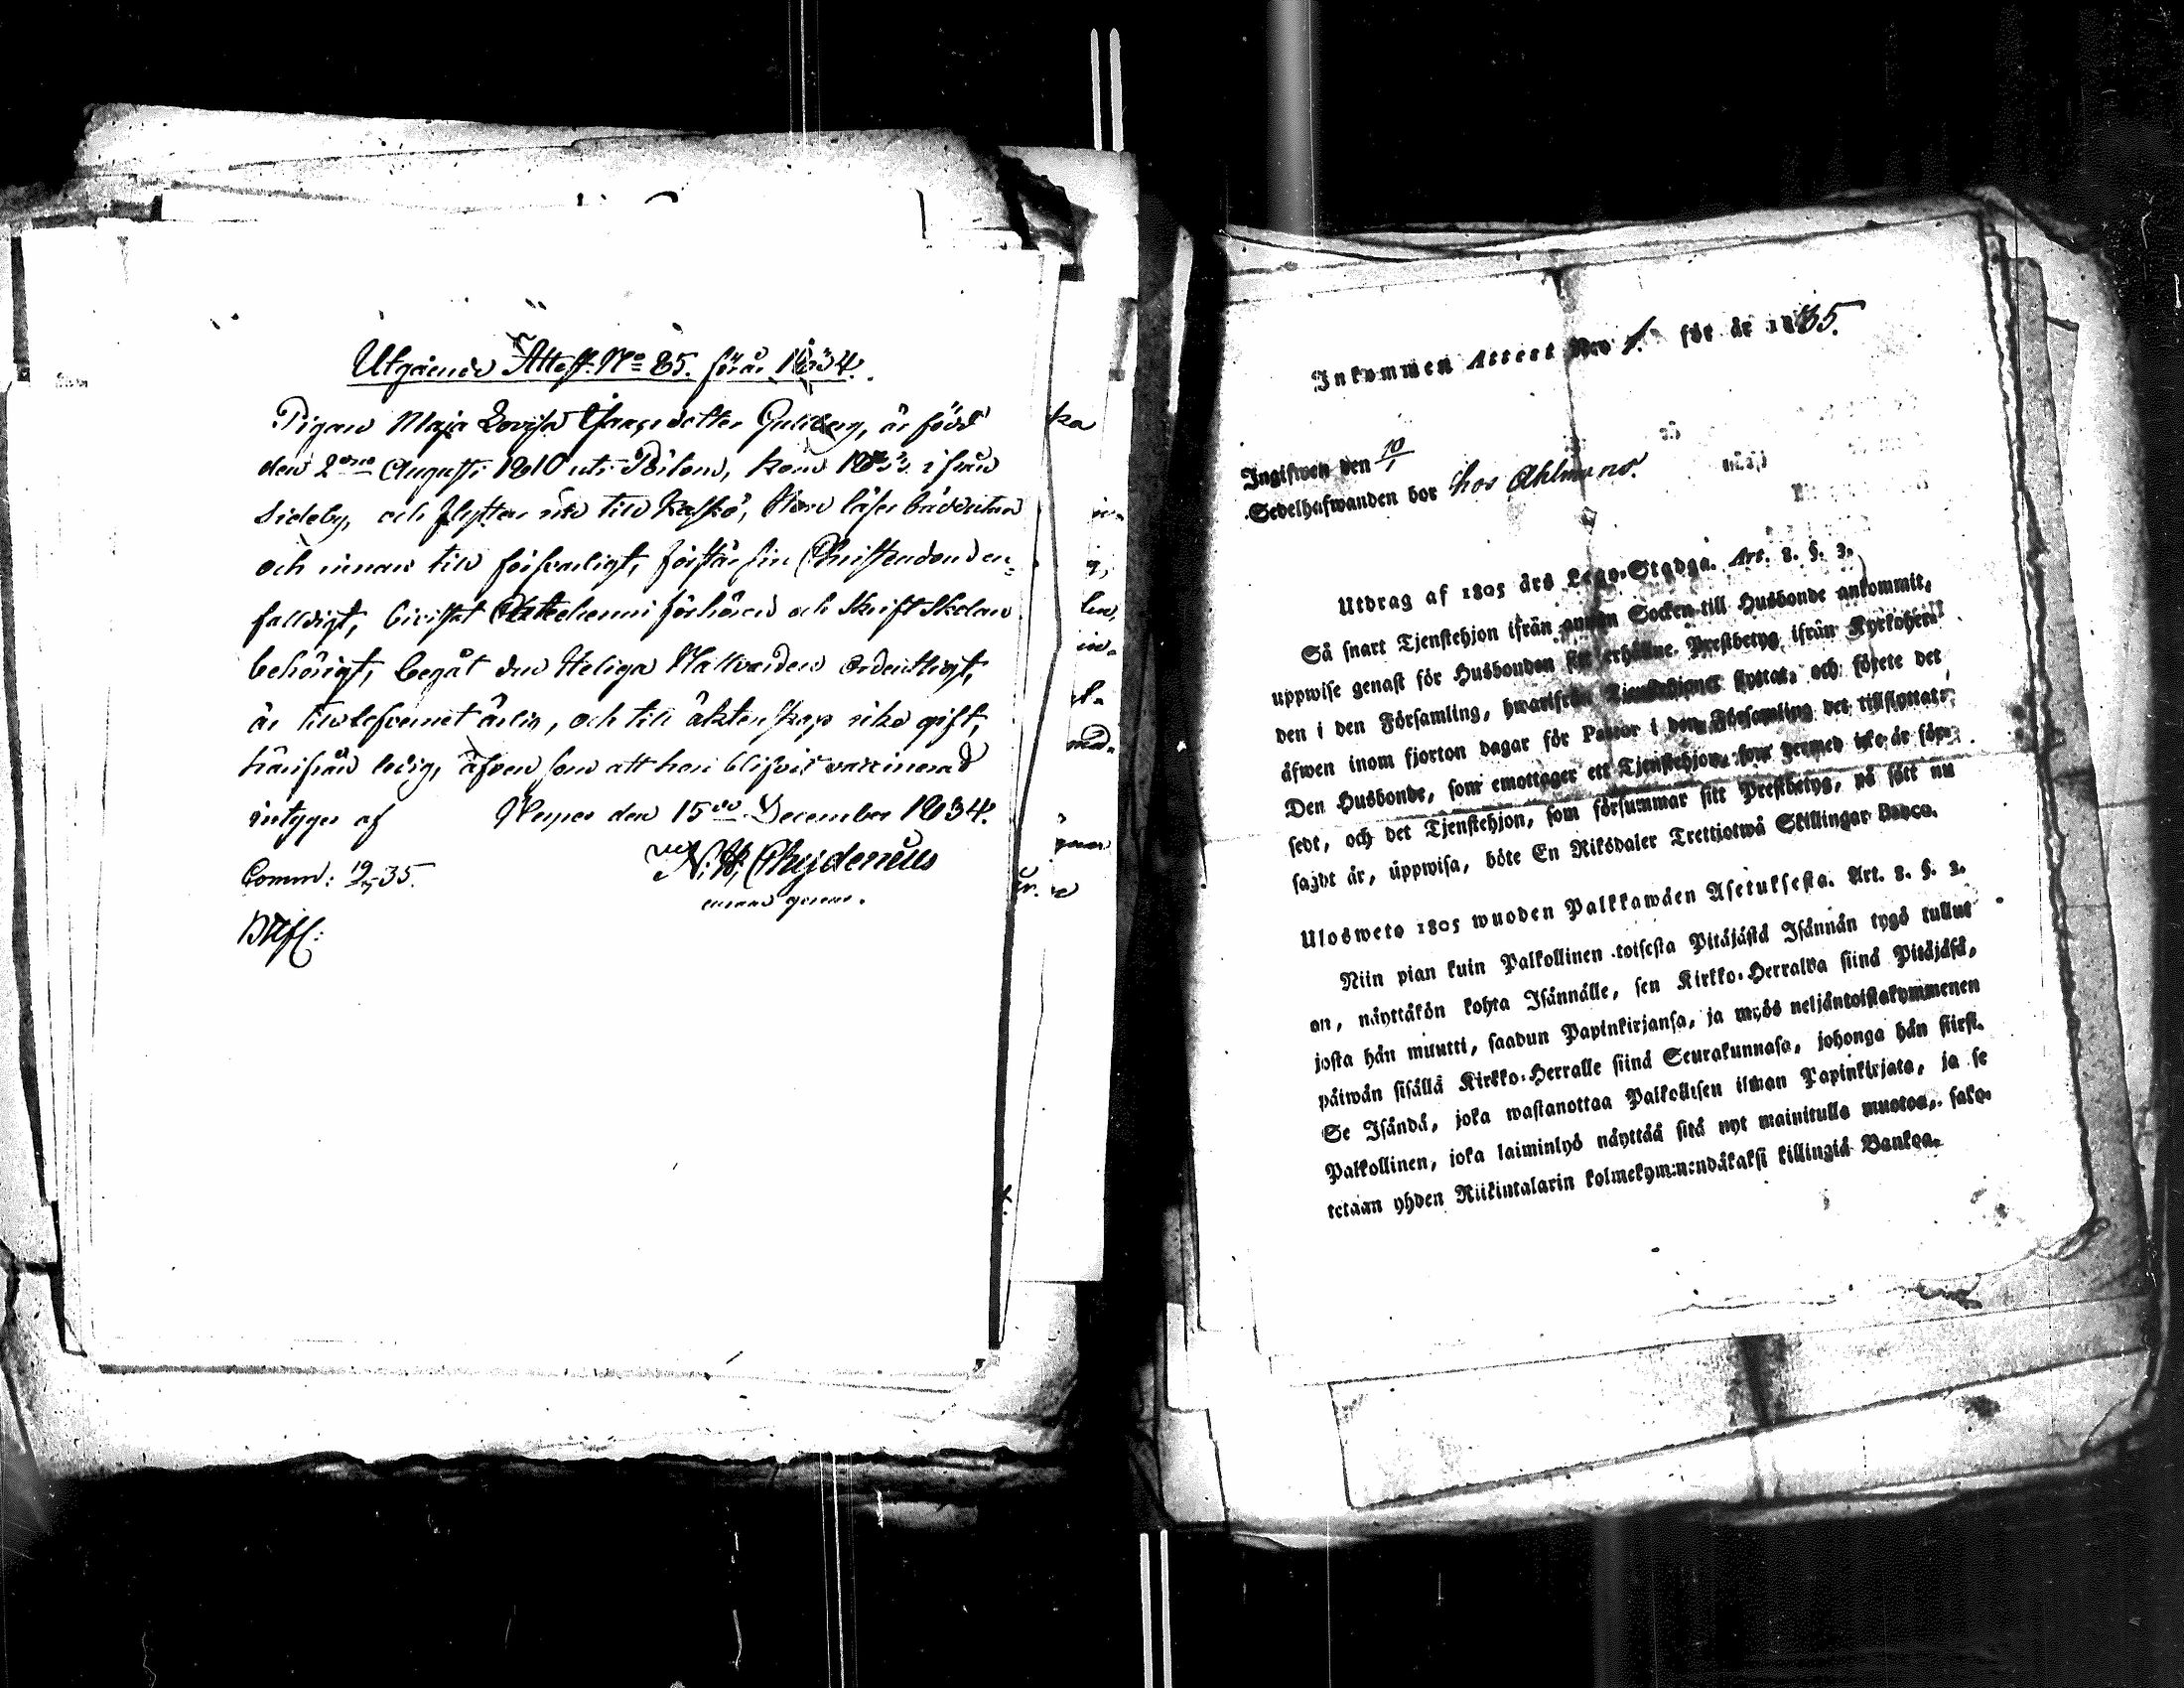 Utgående Attest No 85. för år 1834.
Pigan Maja Lovisa Isaacsdotter Gullberg, är född
den 2dra Augusti 1810 uti Påtom, kom ifrån
Sideby, och flyttar nu till Kaskö, Hon läser både utan
och innan till försvarligt, förstår sin Christendom en-
falldigt, bivistat Katechemi förhören och Skriftskolan
behörigt, begåt den Heliga Nattvarden ordentligt,
är till lefvernet ärlig, och till äktenskap icke gift,
härifrån ledig, äfven som att hon blifvit vaccinerad
intygar af den 15de December 1834.
N. H. Chydenius
Comm: 35.
ka
Inkommen Attest N:o 1. för år 1835.
Ingifwen den 10/1
Sedelhafwanden bor hos Ahlmans.
Utdrag af 1805 års Lego-Stadga. Art. 8. §. 3.
Så snart Tjenstehjon ifrån annan Socken till Husbonde ankommit,
uppwise genast för Husbonden sitt erhållne Prestbetyg ifrån Kyrkoherr
den i den Församling, hwarifrån Tjenstehjonet flyttat, och förete det
äfwen inom fjorton dagar för Pastor i den Församling det tillflyttat;
Den Husbonde, som emottager ett Tjenstehjon, som dermed icke är förs-
sedt, och det Tjenstehjon, som försummar sitt Prestbetyg, på sätt nu
sagdt är, uppwisa, böte En Riksdaler Trettjotwå Skillingar Banco.
Ulosweto 1805 wuoden Palkkawäen Asetuksesta. Art. 8. §. 3.
Niin pian kuin Palkollinen toisesta Pitäjästä Isännän tygö tullut
on, näyttäkön kohta Isännälle, sen Kirkko-Herralda siinä Pitäjäsä,
josta hän muutti, saadun Papinkirjansa, ja myös neljäntoistakymmenen
päiwän sisällä Kirkko-Herralle siinä Seurakunnasa, johonga hän siirsi.
Se Isändä, joka wastanottaa Palkollisen ilman Papinkirjata, ja se
Palkollinen, joka laiminlyö näyttää sitä nyt mainitulla muotoa, sako-
tetaan yhden Riikintalarin kolmekymmendäkaksi killingiä Bankoa.